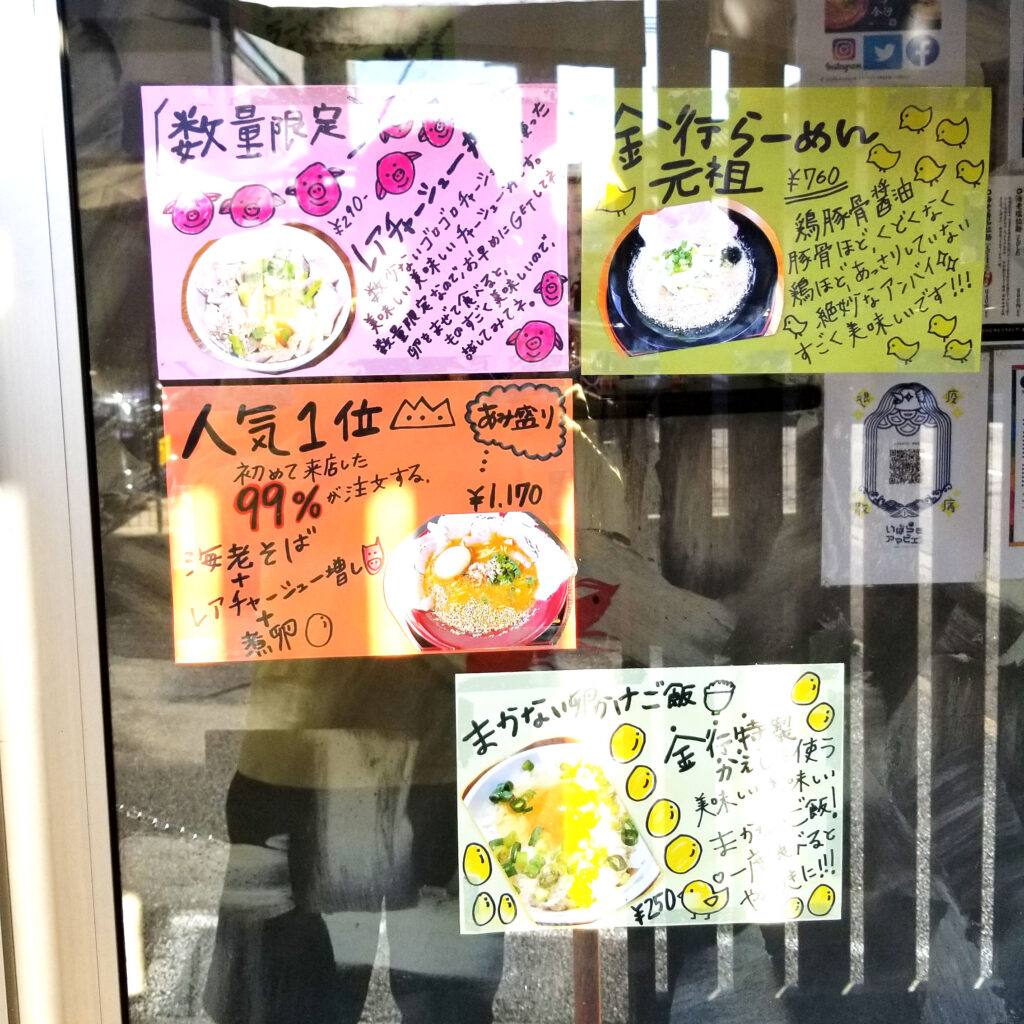 数量限定
¥290-
レアチャーシュー
数少ないゴロゴロチャーシュー
美味しいチャーシュー
数量限定なのでお早めにGETしてネ
卵をまぜて食べると、
ものすごく美味しいので、
試してみてネ。
金行らーめん
元祖
¥760
鶏豚骨醤油
豚骨ほど、くどくなく
鶏ほどあっさりしていない
絶妙なアンバイ
すごく美味しいです!!!
人気1位
あみ盛り
初めて来店した
99%が注文する。
¥1,170
海老そば
+
レアチャーシュー増し
+
煮卵
まかない卵かけご飯
金行特製
かえし
使う
美味しい
ご飯!
¥250
Instagram
疫
散
病
いばらき
アマビエ